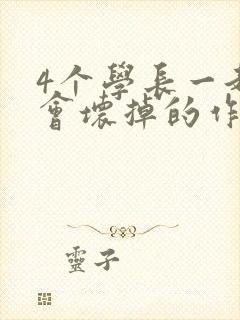 4个學長一起
會壞掉的作
靈子